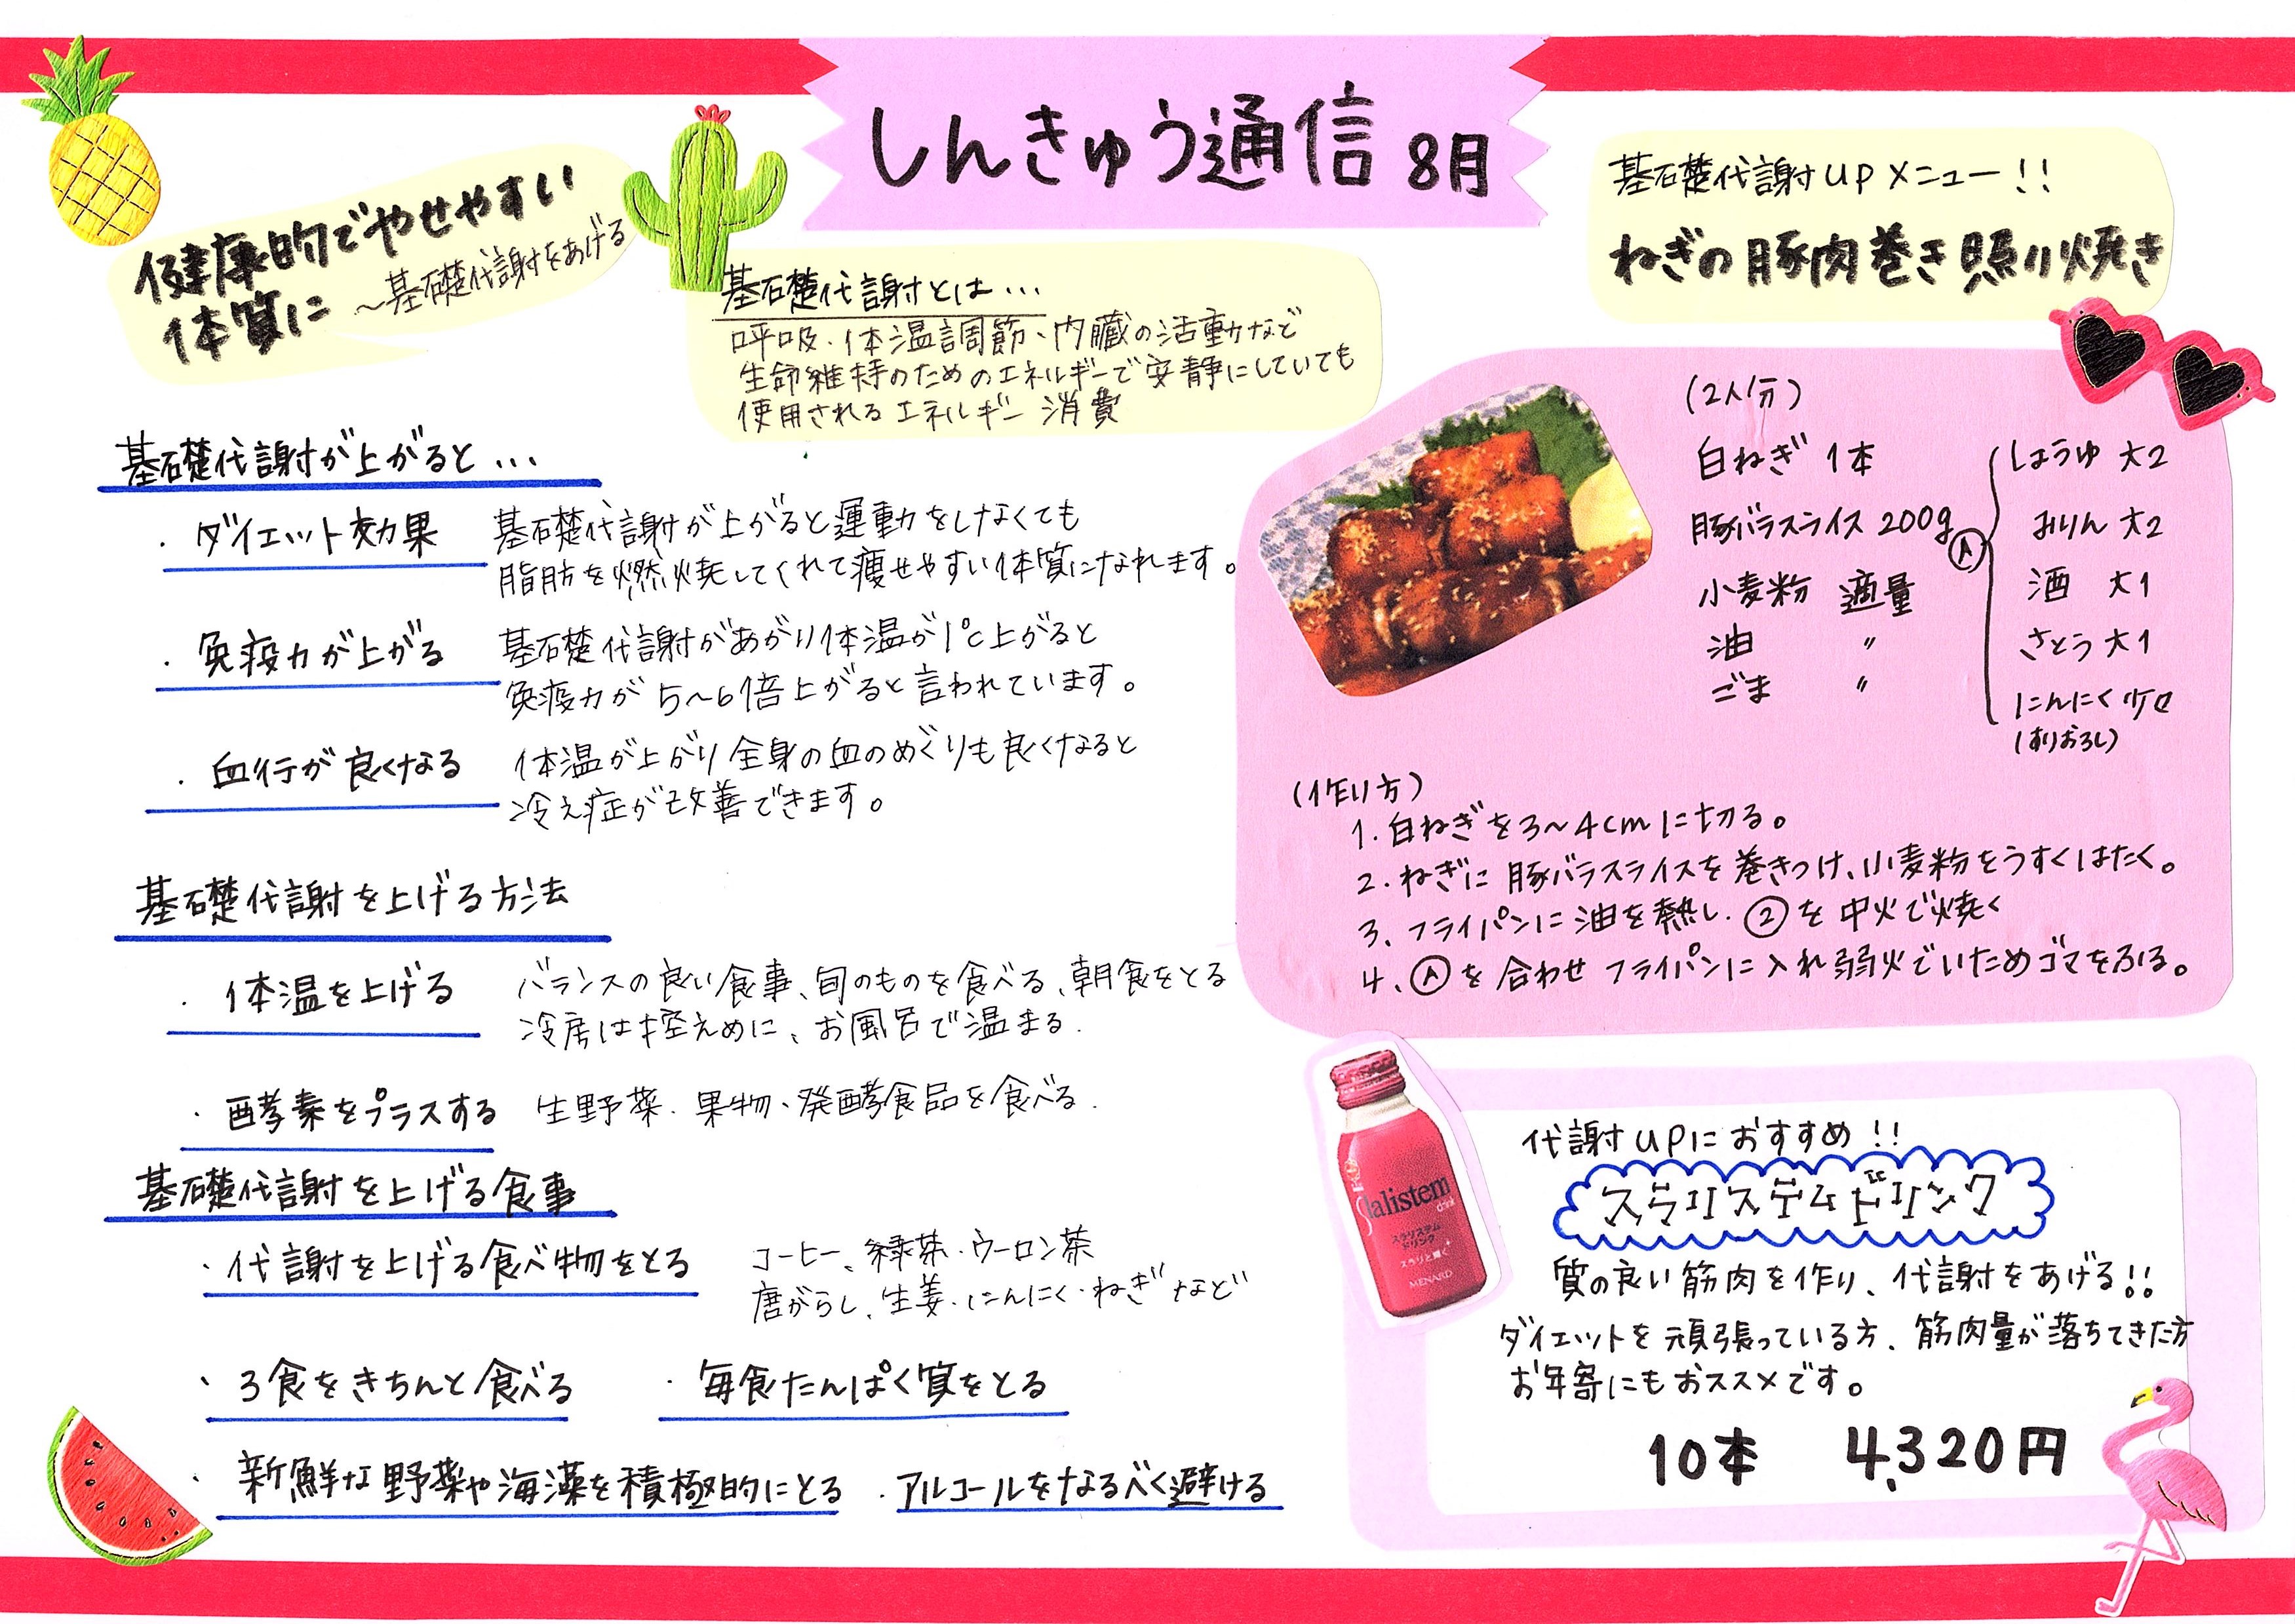 しんきゅう通信 8月
健康的でやせやすい
体質に ～基礎代謝をあげる
基礎代謝とは…
呼吸、体温調節、内臓の活動など
生命維持のためのエネルギーで安静にしていても
使用されるエネルギー消費
基礎代謝が上がると…
・ダイエット効果
基礎代謝が上がると運動をしなくても
脂肪を燃焼してくれて痩せやすい体質になれます。
・免疫力が上がる
基礎代謝があがり体温が1℃上がると
免疫力が5～6倍上がると言われています。
・血行が良くなる
体温が上がり全身の血のめぐりも良くなると
冷え症が改善できます。
基礎代謝を上げる方法
・体温を上げる
バランスの良い食事、旬のものを食べる、朝食をとる
冷房は控えめに、お風呂で温まる.
・酵素をプラスする
生野菜、果物、発酵食品を食べる.
基礎代謝を上げる食事
・代謝を上げる食べ物をとる
コーヒー、緑茶、ウーロン茶
唐がらし、生姜、にんにく、ねぎなど
・3食をきちんと食べる
・毎食たんぱく質をとる
・新鮮な野菜や海藻を積極的にとる
・アルコールをなるべく避ける
基礎代謝UPメニュー!!
ねぎの豚肉巻き照り焼き
(2人分)
白ねぎ 1本
豚バラスライス 200g
小麦粉 適量
油 〃
ごま 〃
Ⓐ
しょうゆ 大2
みりん 大2
酒 大1
さとう 大1
にんにく 少々
(すりおろし)
(作り方)
1. 白ねぎを3～4cmに切る。
2. ねぎに豚バラスライスを巻きつけ、小麦粉をうすくはたく。
3、フライパンに油を熱し、②を中火で焼く
4、Ⓐを合わせフライパンに入れ弱火でいためゴマをふる。
Salistem
drink
スラリステム
ドリンク
MENARD
代謝UPにおすすめ!!
スラリステムドリンク
質の良い筋肉を作り、代謝をあげる!!
ダイエットを頑張っている方、筋肉量が落ちてきた方
お年寄にもおススメです。
10本 4,320円